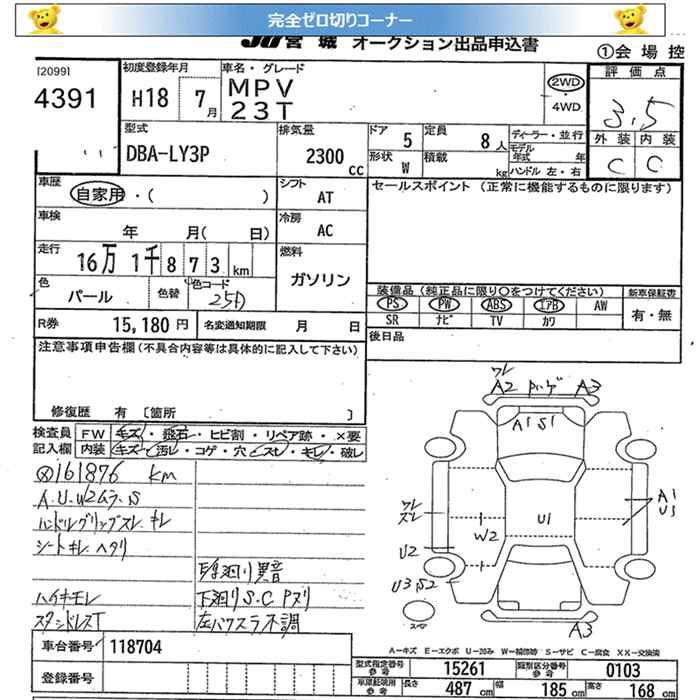 完全ゼロ切りコーナー
JU宮城 オークション出品申込書
①会場控
[2099]
4391
初度登録年月
H18 7月
車名・グレード
MPV
23T
2WD
・
4WD
評価点
3.5
外装 内装
C C
型式
DBA-LY3P
排気量
2300 CC
ドア 5
形状 W
定員 8人
積載 kg
ディーラー・並行
モデル年式 年
ハンドル 左・右
車歴
自家用・( )
シフト
AT
セールスポイント (正常に機能するものに限ります)
車検
年 月( 日)
冷房
AC
走行
16万1千873km
燃料
ガソリン
色
パール
色替
色コード
25D
装備品 (純正品に限り○をつけてください)
新車保証書
PS PW ABS エアB AW
SR ナビ TV カワ
有・無
R券 15,180円
名変通知期限 月 日
後日品
注意事項申告欄(不具合内容等は具体的に記入して下さい)
修復歴 有 [箇所 ]
検査員記入欄
FW キズ・飛石・ヒビ割・リペア跡・×要
内装 キズ・汚レ・コゲ・穴・スレ・キレ・破レ
161876 km
A.U.W2ムラ.S
ハンドルグリップスレ.キレ
シートキレ ヘタリ
異音
下廻りS.C
ハイキモレ
不調
ワレ
A2 A3
A1 S1
ワレ
スレ
U1
W2
A1
U1
U2
U3.S2
スペア
A3
A-キズ E-エクボ U-凹み W-補修跡 S-サビ C-腐食 XX-交換済
車台番号 118704
登録番号
型式指定番号 参考 15261
類別区分番号 参考 0103
車庫証明用 参考
長さ 487cm
幅 185cm
高さ 168cm